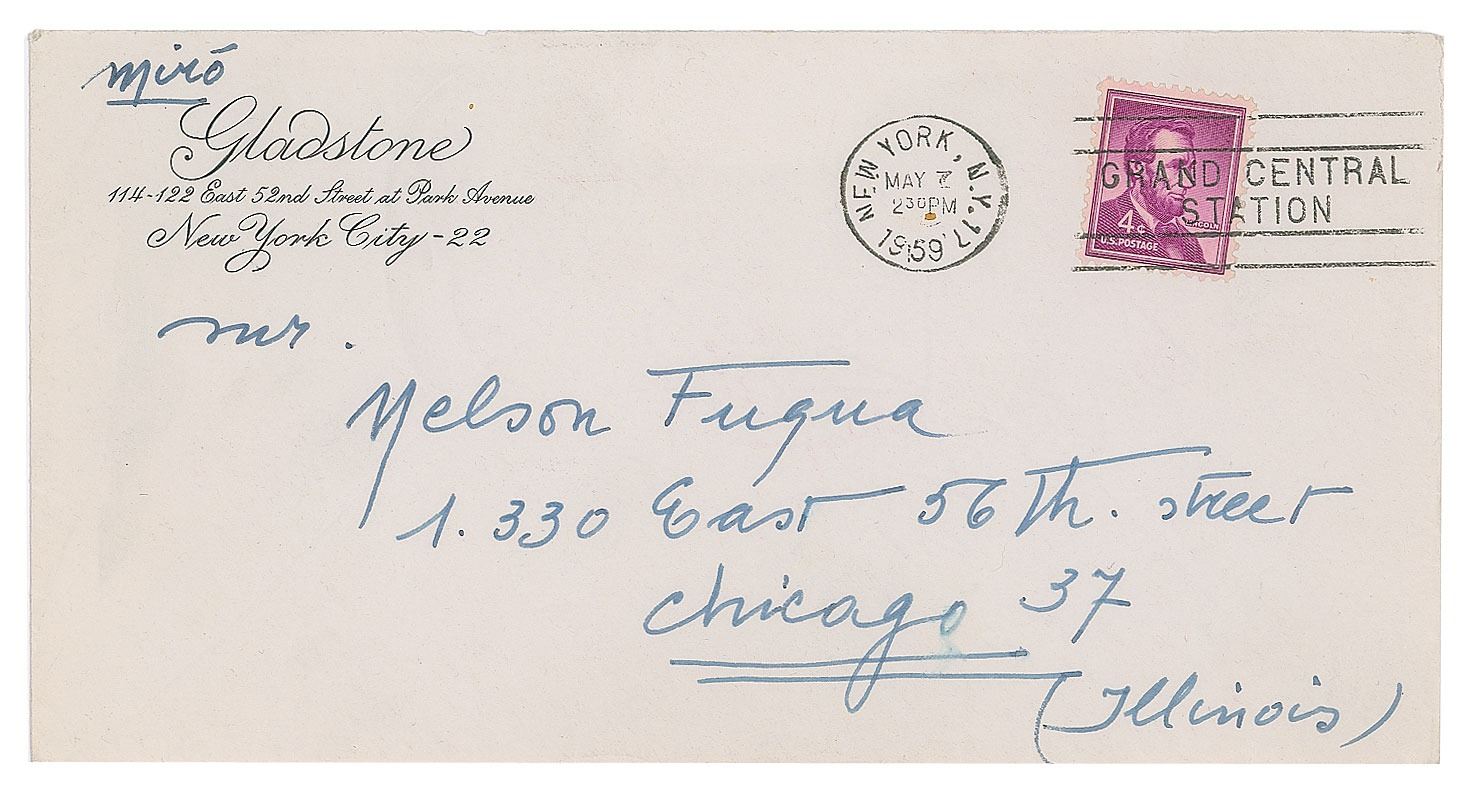 Miró
Gladstone
114-122 East 52nd Street at Park Avenue
New York City-22
NEW YORK, N.Y. 17
MAY 7
2 30 PM
1959
GRAND CENTRAL
STATION
4¢
LINCOLN
U.S. POSTAGE
mr.
Nelson Fuqua
1.330 East 56 Th. street
chicago 37
(Illinois)